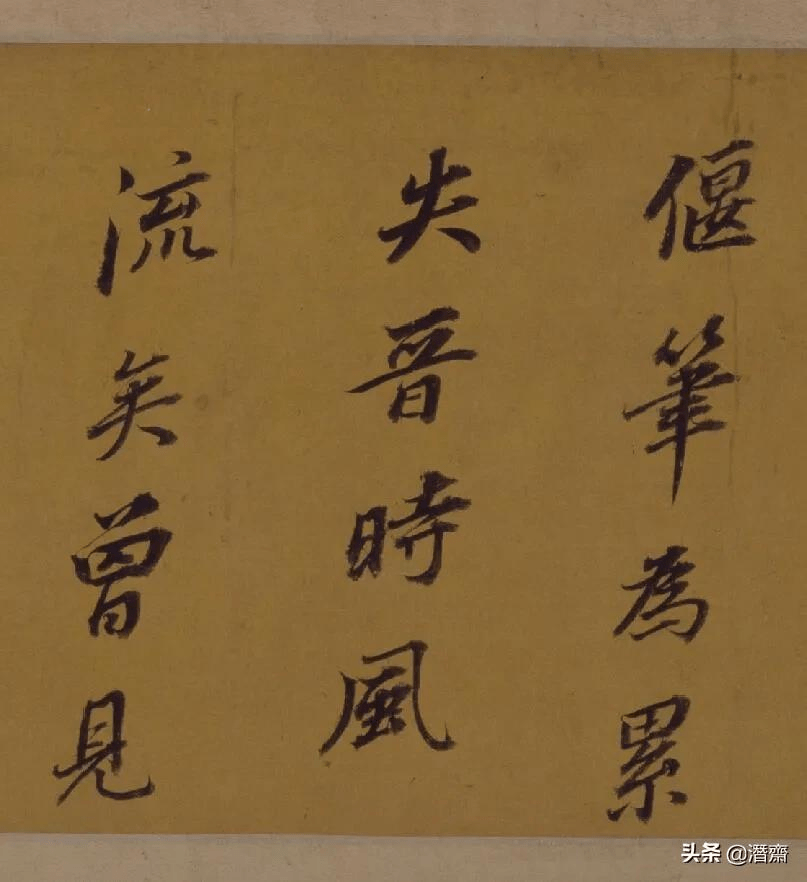 偃筆為累
失晉時風
流矣曾見
头条 @潛齋